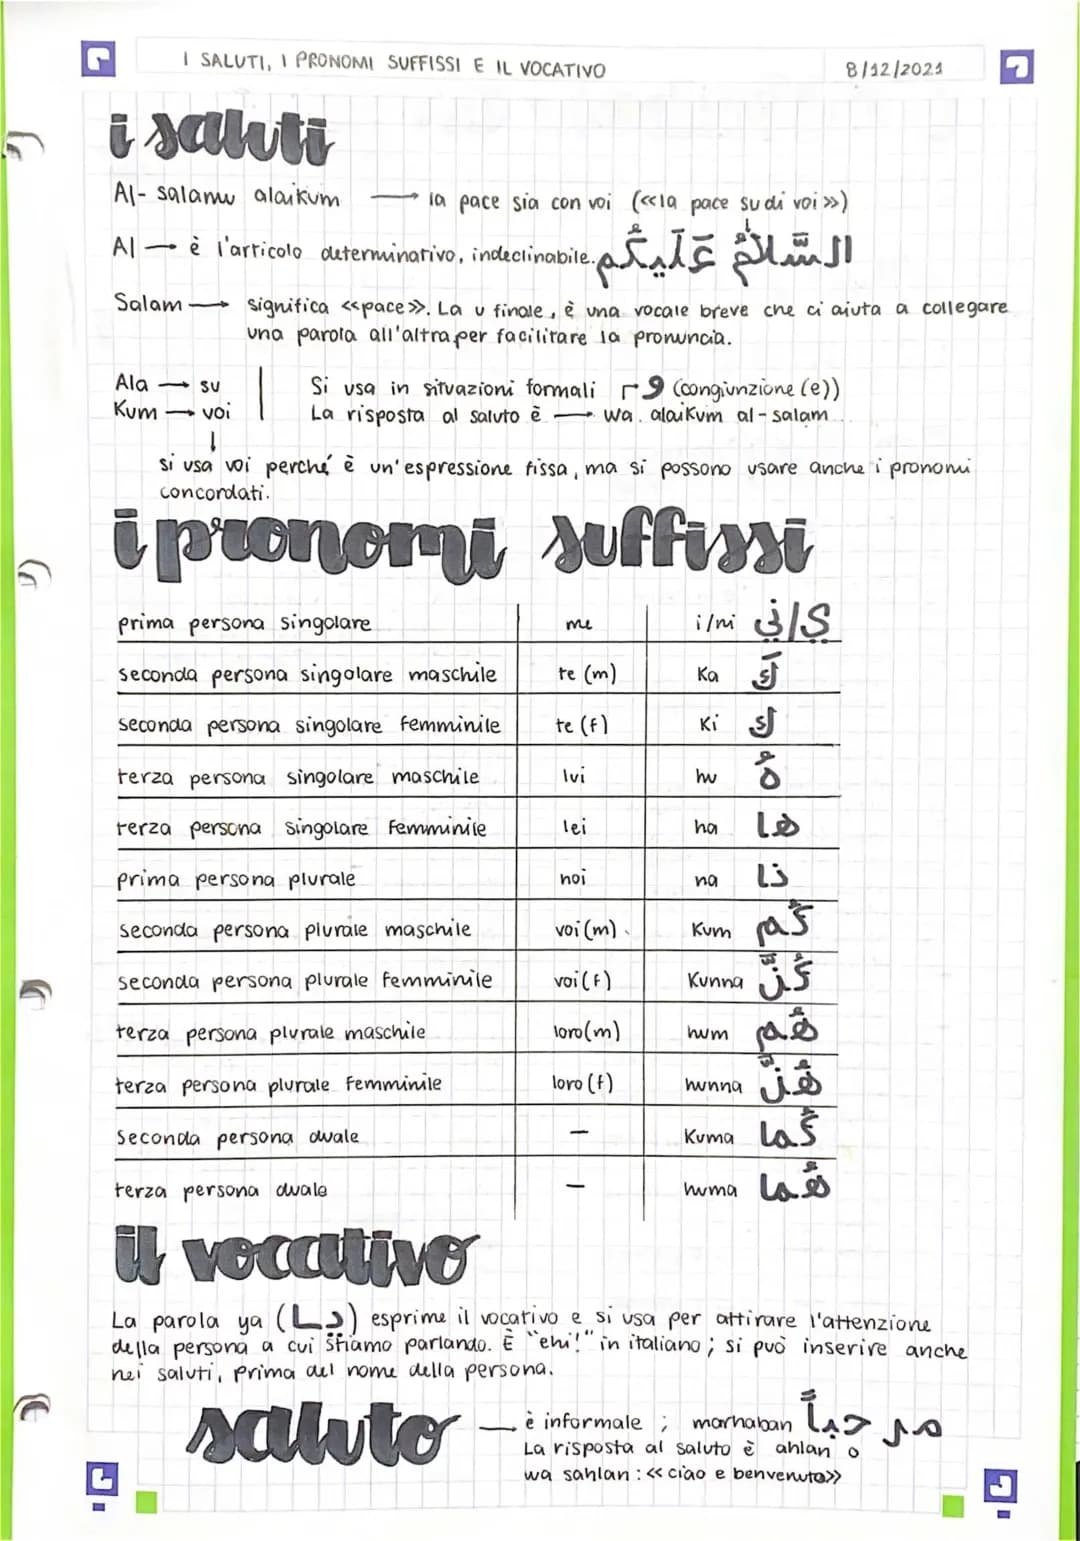 I SALUTI, I PRONOMI SUFFISSI E IL VOCATIVO 8/12/2021
i saluti
Al-salamu alaikum → la pace sia con voi («la pace su di voi»)
Al → è l'articolo determinativo, indeclinabile. السَّلامُ عَلَيكُم
Salam → significa «pace». La u finale, è una vocale breve che ci aiuta a collegare
una parola all'altra per facilitare la pronuncia.
Ala → su | Si usa in situazioni formali و (congiunzione (e))
Kum → voi | La risposta al saluto è → wa. alaikum al-salam
si usa voi perché è un'espressione fissa, ma si possono usare anche i pronomi
concordati.
i pronomi suffissi
prima persona singolare me i/ni ي/ني
seconda persona singolare maschile te (m) Ka كَ
seconda persona singolare femminile te (f) Ki كِ
terza persona singolare maschile lui hu هُ
terza persona singolare femminile lei ha ها
prima persona plurale noi na نا
seconda persona plurale maschile voi (m) Kum كُم
seconda persona plurale femminile voi (f) Kunna كُنَّ
terza persona plurale maschile loro (m) hum هُم
terza persona plurale femminile loro (f) hunna هُنَّ
Seconda persona duale – Kuma كُما
terza persona duale – huma هُما
il vocativo
La parola ya (يا) esprime il vocativo e si usa per attirare l'attenzione
della persona a cui stiamo parlando. È "ehi!" in italiano; si può inserire anche
nei saluti, prima del nome della persona.
saluto — è informale; marhaban مرحباً
La risposta al saluto è ahlan o
wa sahlan: «ciao e benvenuto»